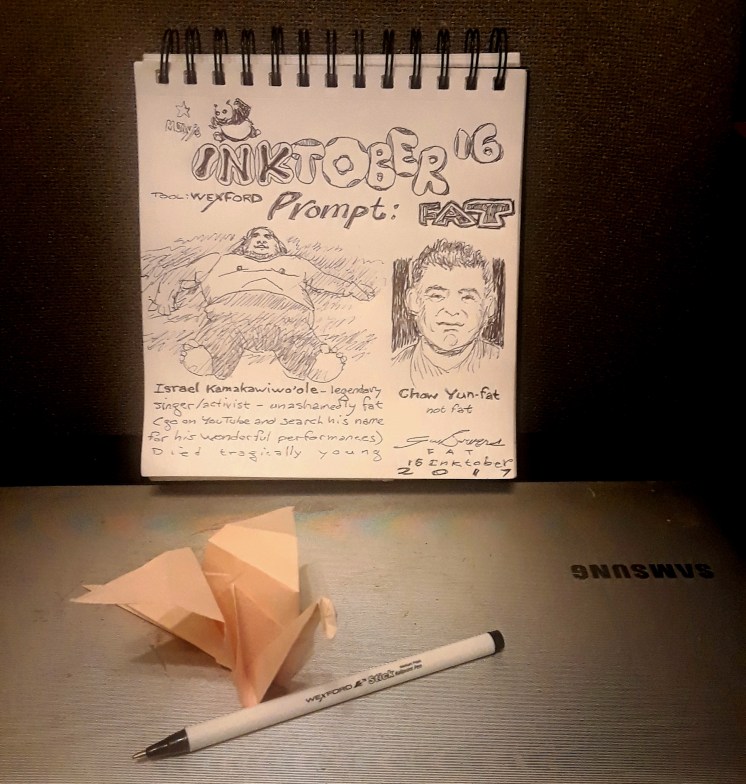 INKTOBER 16
TOOL: WEXFORD Prompt: FAT
Israel Kamakawiwo'ole - legendary
singer/activist - unashamedly fat
(go on YouTube and search his name
for his wonderful performances)
Died tragically young
Chow Yun-fat
not fat
FAT
16 Inktober
2017
SAMSUNG
WEXFORD Stick